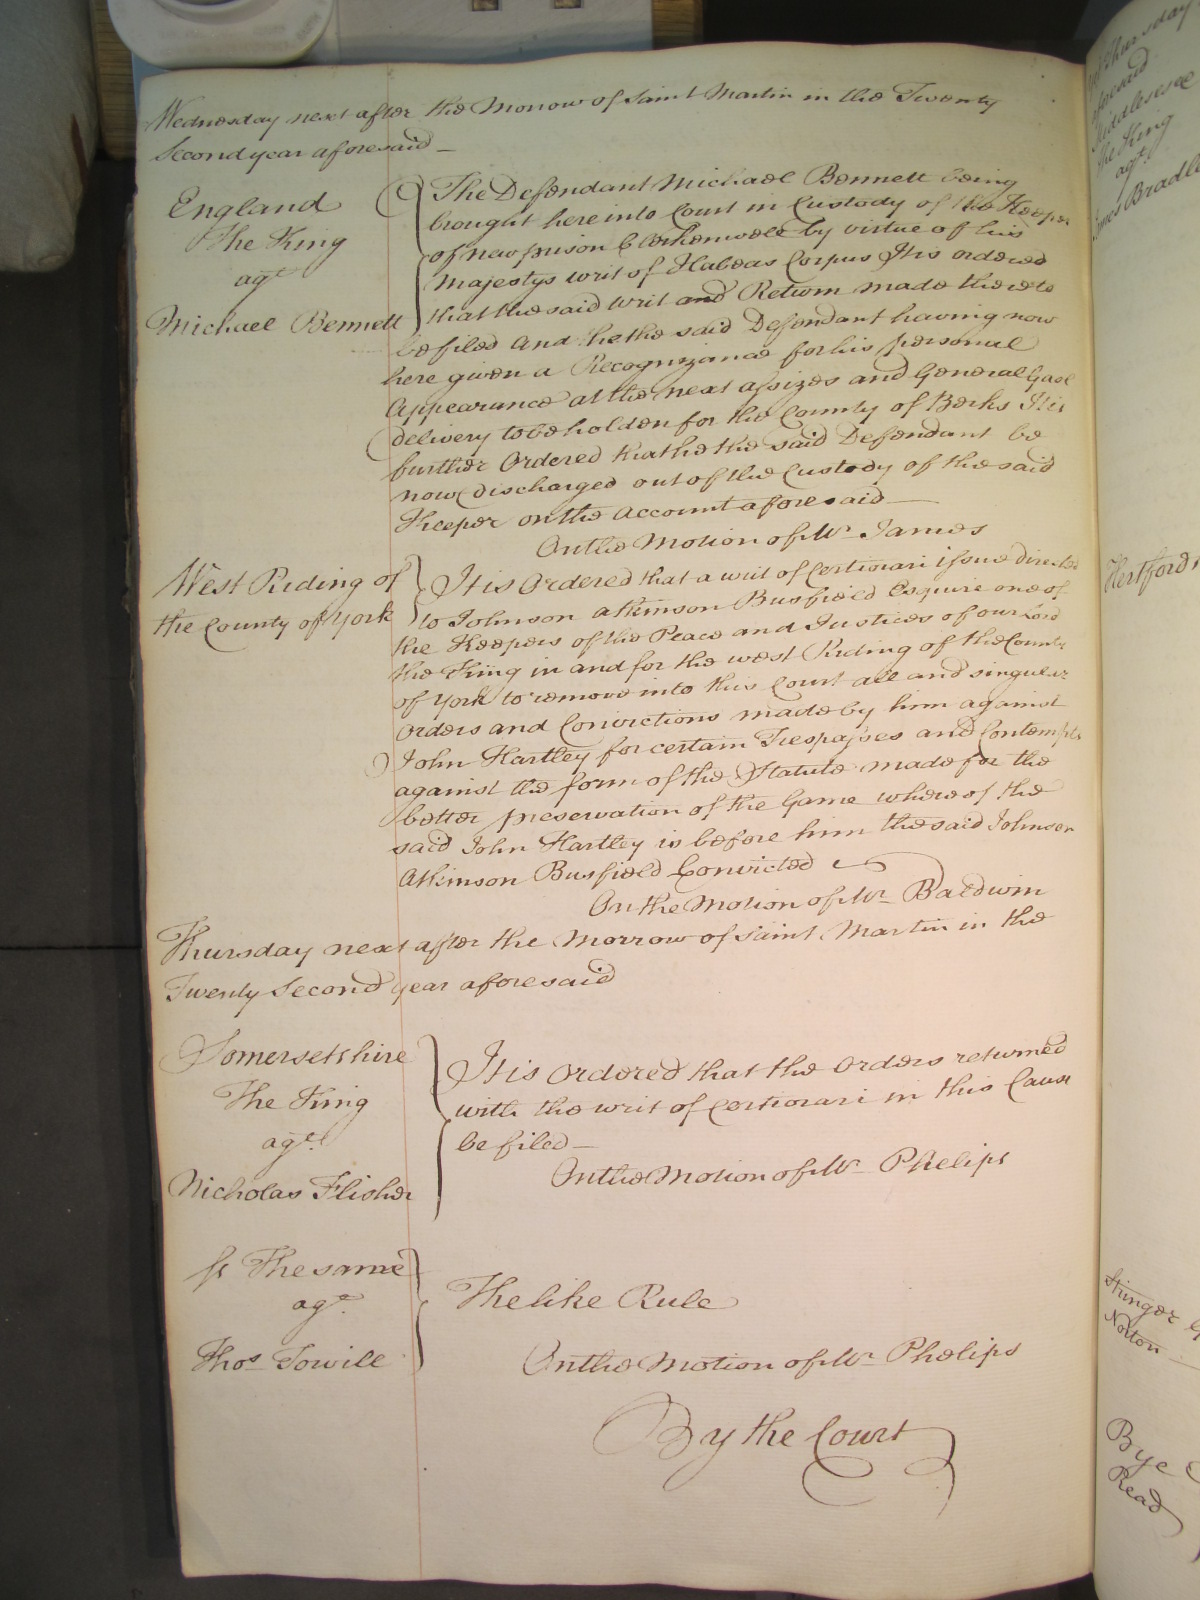 Wednesday next after the Morrow of Saint Martin in the Twenty
Second year aforesaid
England
The King
agt
Michael Bennett
The Defendant Michael Bennett being
brought here into Court in Custody of the Keeper
of new prison Clerkenwell by virtue of his
Majestys writ of Habeas Corpus It is ordered
that the said writ and Return made thereto
be filed And he the said Defendant having now
here given a Recognizance for his personal
Appearance at the next assizes and General Gaol
delivery to be holden for the County of Berks It is
further Ordered that he the said Defendant be
now discharged out of the Custody of the said
Keeper on the account aforesaid
On the Motion of Mr James
West Riding of
the County of York
It is Ordered that a writ of Certiorari issue directed
to Johnson Atkinson Busfield Esquire one of
the Keepers of the Peace and Justices of our Lord
the King in and for the west Riding of the County
of York to remove into this Court all and singular
orders and Convictions made by him against
John Hartley for certain Trespasses and Contempts
against the form of the Statute made for the
better preservation of the Game whereof the
said John Hartley is before him the said Johnson
Atkinson Busfield Convicted
On the Motion of Mr Baldwin
Thursday next after the Morrow of Saint Martin in the
Twenty Second year aforesaid
Somersetshire
The King
agt
Nicholas Flisher
It is Ordered that the Orders returned
with the writ of Certiorari in this Cause
be filed
On the Motion of Mr Phelips
Is The same
agt
Thos Towill
The like Rule
On the Motion of Mr Phelips
By the Court
Thursday
aforesaid
Middlesex
The King
agt
James Bradl
Hertfords
Stringer
Norton
Bye
Read